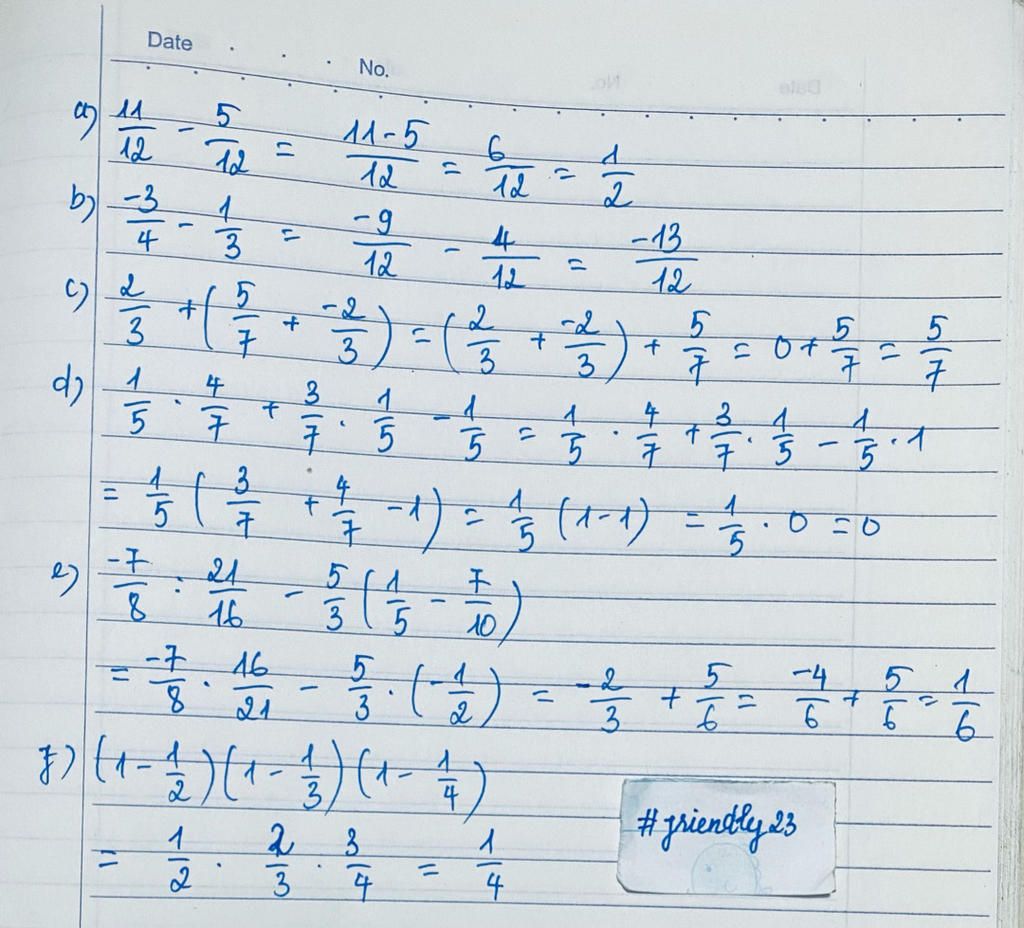 Date . . . No.
a) 11/12 - 5/12 = (11-5)/12 = 6/12 = 1/2
b) -3/4 - 1/3 = -9/12 - 4/12 = -13/12
c) 2/3 + (5/7 + -2/3) = (2/3 + -2/3) + 5/7 = 0 + 5/7 = 5/7
d) 1/5 . 4/7 + 3/7 . 1/5 - 1/5 = 1/5 . 4/7 + 3/7 . 1/5 - 1/5 . 1
= 1/5 (3/7 + 4/7 - 1) = 1/5 (1-1) = 1/5 . 0 = 0
e) -7/8 : 21/16 - 5/3 (1/5 - 7/10)
= -7/8 . 16/21 - 5/3 . (-1/2) = -2/3 + 5/6 = -4/6 + 5/6 = 1/6
f) (1 - 1/2)(1 - 1/3)(1 - 1/4)
= 1/2 . 2/3 . 3/4 = 1/4
#friendly23